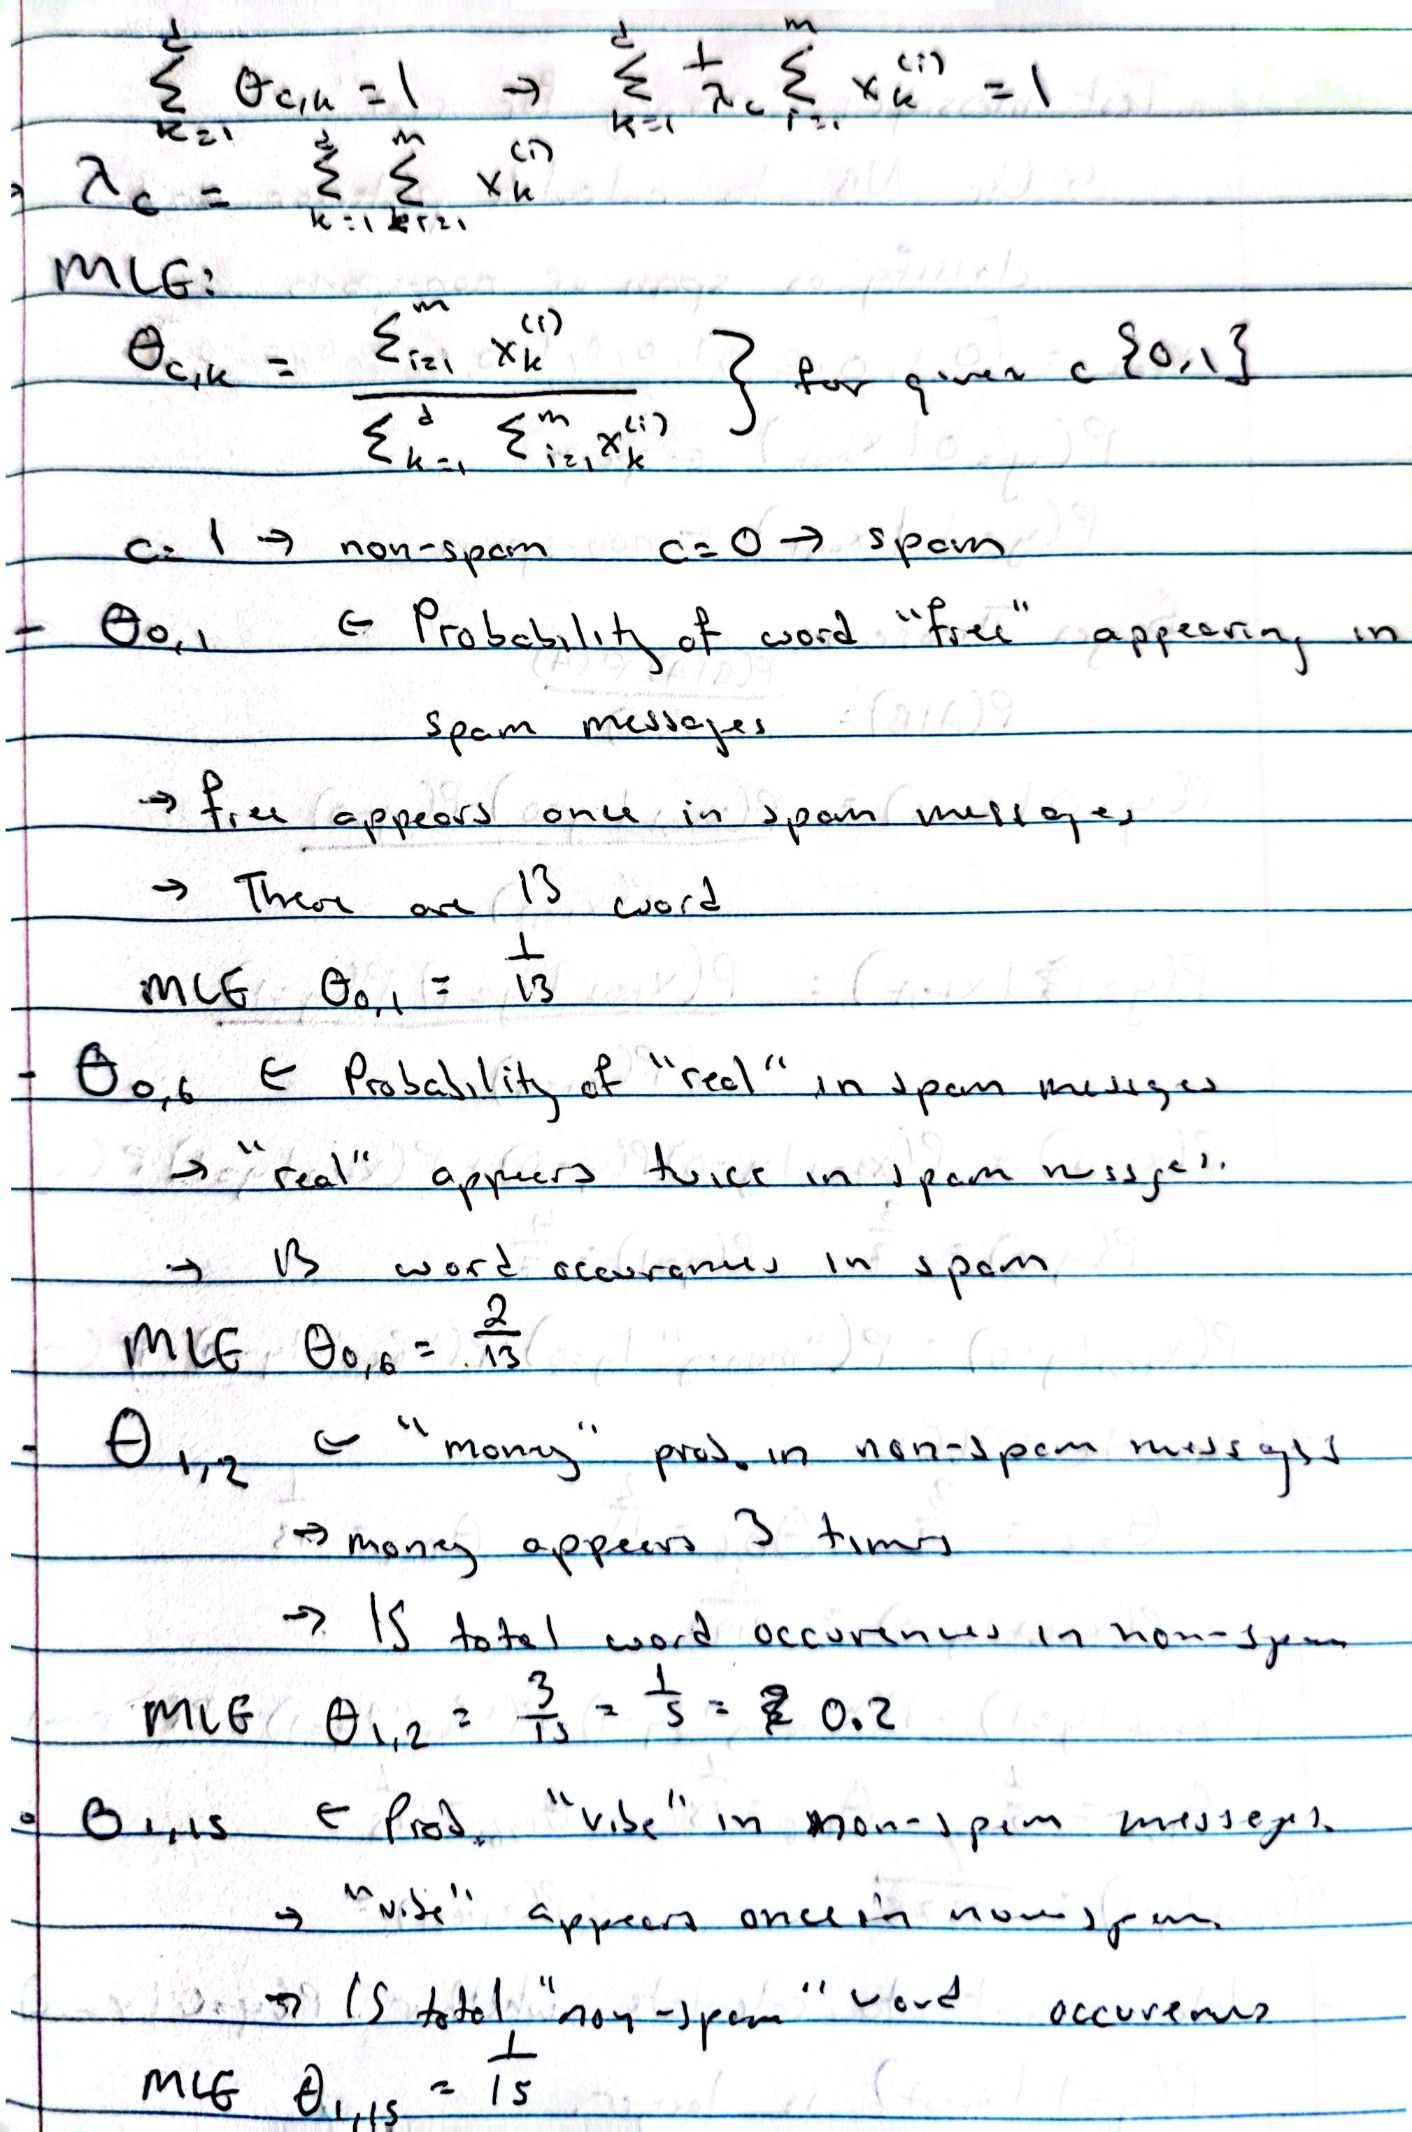 ∑_{k=1}^{d} θ_{c,k} = 1 → ∑_{k=1}^{d} 1/λ_c ∑_{i=1}^{m} x_k^{(i)} = 1
λ_c = ∑_{k=1}^{d} ∑_{i=1}^{m} x_k^{(i)}
MLE:
θ_{c,k} = ∑_{i=1}^{m} x_k^{(i)} / ∑_{k=1}^{d} ∑_{i=1}^{m} x_k^{(i)} } for given c {0,1}
c=1 → non-spam c=0 → spam
- θ_{0,1} ← Probability of word "free" appearing in
spam messages
→ free appears once in spam messages
→ There are 13 word
MLE θ_{0,1} = 1/13
- θ_{0,6} ← Probability of "real" in spam messges
→ "real" appears twice in spam messges.
→ 13 word occurances in spam
MLE θ_{0,6} = 2/13
- θ_{1,2} ← "money" prob. in non-spam messages
→ money appears 3 times
→ 15 total word occurences in non-spam
MLE θ_{1,2} = 3/15 = 1/5 = 0.2
- θ_{1,15} ← Prob. "vibe" in non-spam messeges.
→ "vibe" appears once in non-spam.
→ 15 total "non-spam" word occurences
MLE θ_{1,15} = 1/15